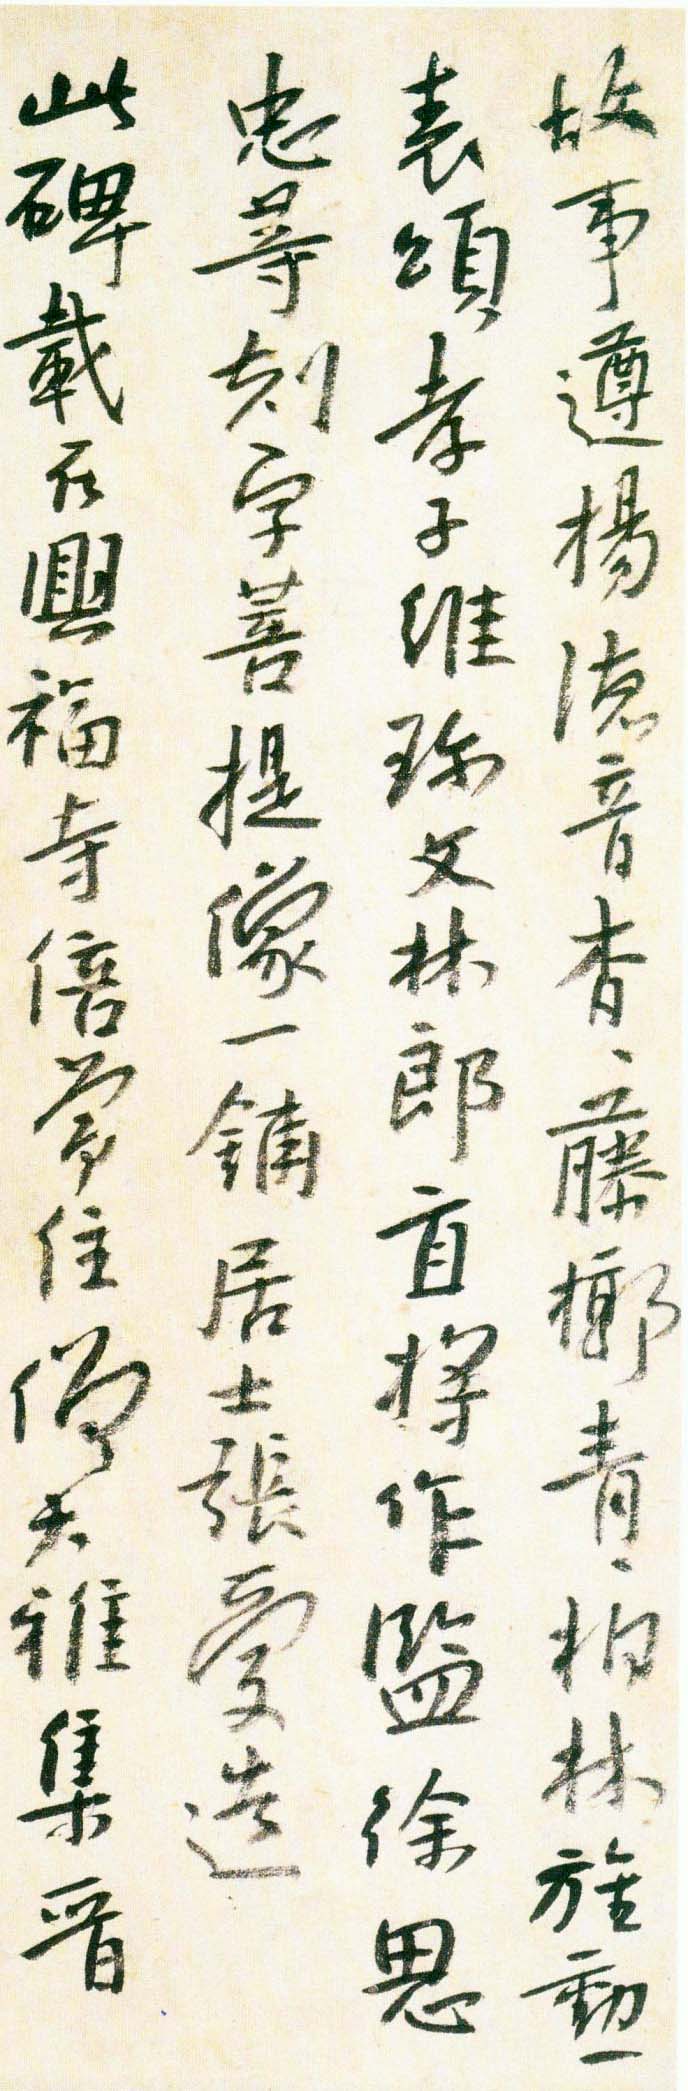 故事遵揚德音杳、藤槨青、柏林旌勳一
表頌孝子維珎文林郎直將作監徐思
忠等刻字菩提像一鋪居士張愛造
此碑載在興福寺倍常住僧大雅集晉